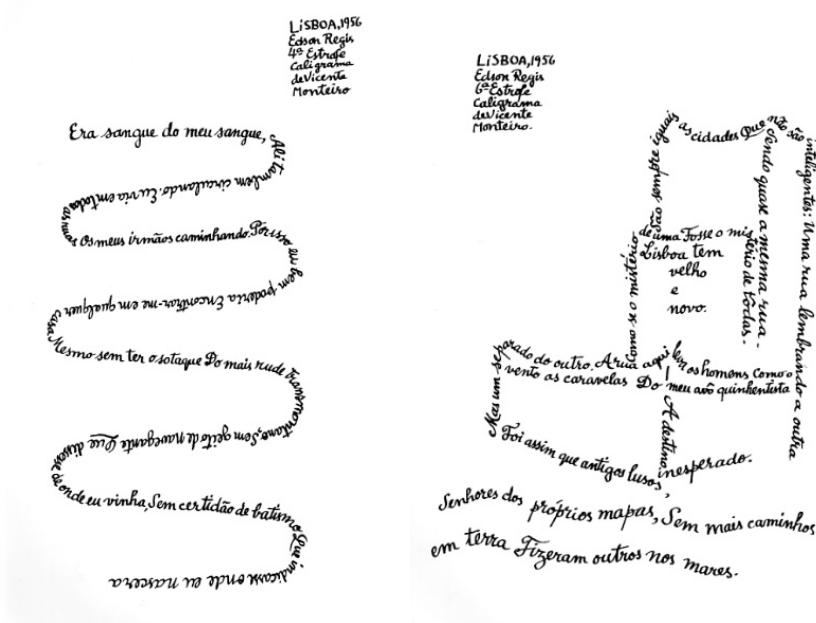 LiSBOA, 1956
Edson Regis
4ª Estrofe
Caligrama
de Vicente
Monteiro
Era sangue do meu sangue,
Ali também circulando. Eu via em todas
as ruas Os meus irmãos caminhando. Por isso
eu bem poderia Encontrar-me em qualquer
casa Mesmo sem ter o sotaque Do mais rude transmontano,
Sem geito de navegante Que dissesse
de onde eu vinha, Sem certidão de batismo Que
indicasse onde eu nascera
LiSBOA, 1956
Edson Regis
6ª Estrofe
Caligrama
de Vicente
Monteiro.
São sempre iguais as cidades Que não são inteligentes: Uma rua lembrando a outra
Sendo quase a mesma rua.
Como se o mistério de uma Fosse o mistério de tôdas.
Lisboa tem
velho
e
novo.
Mas um separado do outro. A rua aqui leva os homens Como o
vento as caravelas Do meu avô quinhentista
A destino inesperado.
Foi assim que antigos lusos,
Senhores dos próprios mapas, Sem mais caminhos
em terra Fizeram outros nos mares.